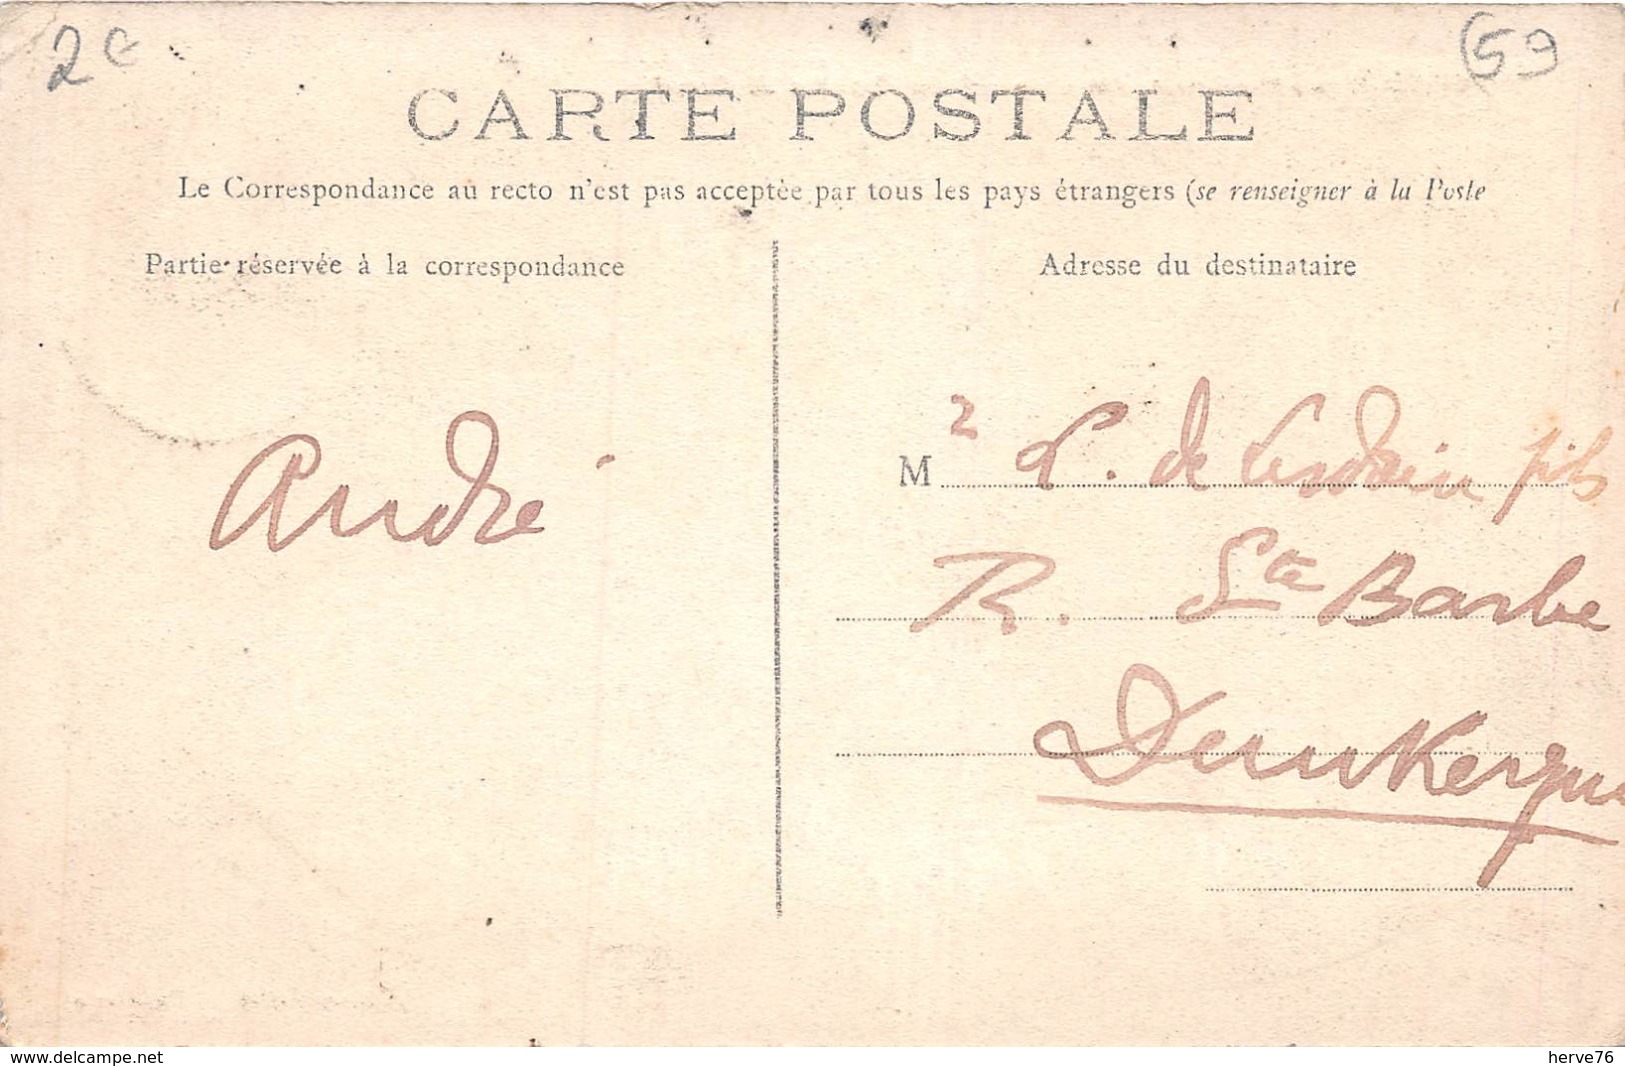 2€
(59
CARTE POSTALE
Le Correspondance au recto n'est pas acceptée par tous les pays étrangers (se renseigner à la Poste
Partie réservée à la correspondance
Adresse du destinataire
André
M 2 L. de fils
R. Ste Barbe
Dunkerque
www.delcampe.net
herve76